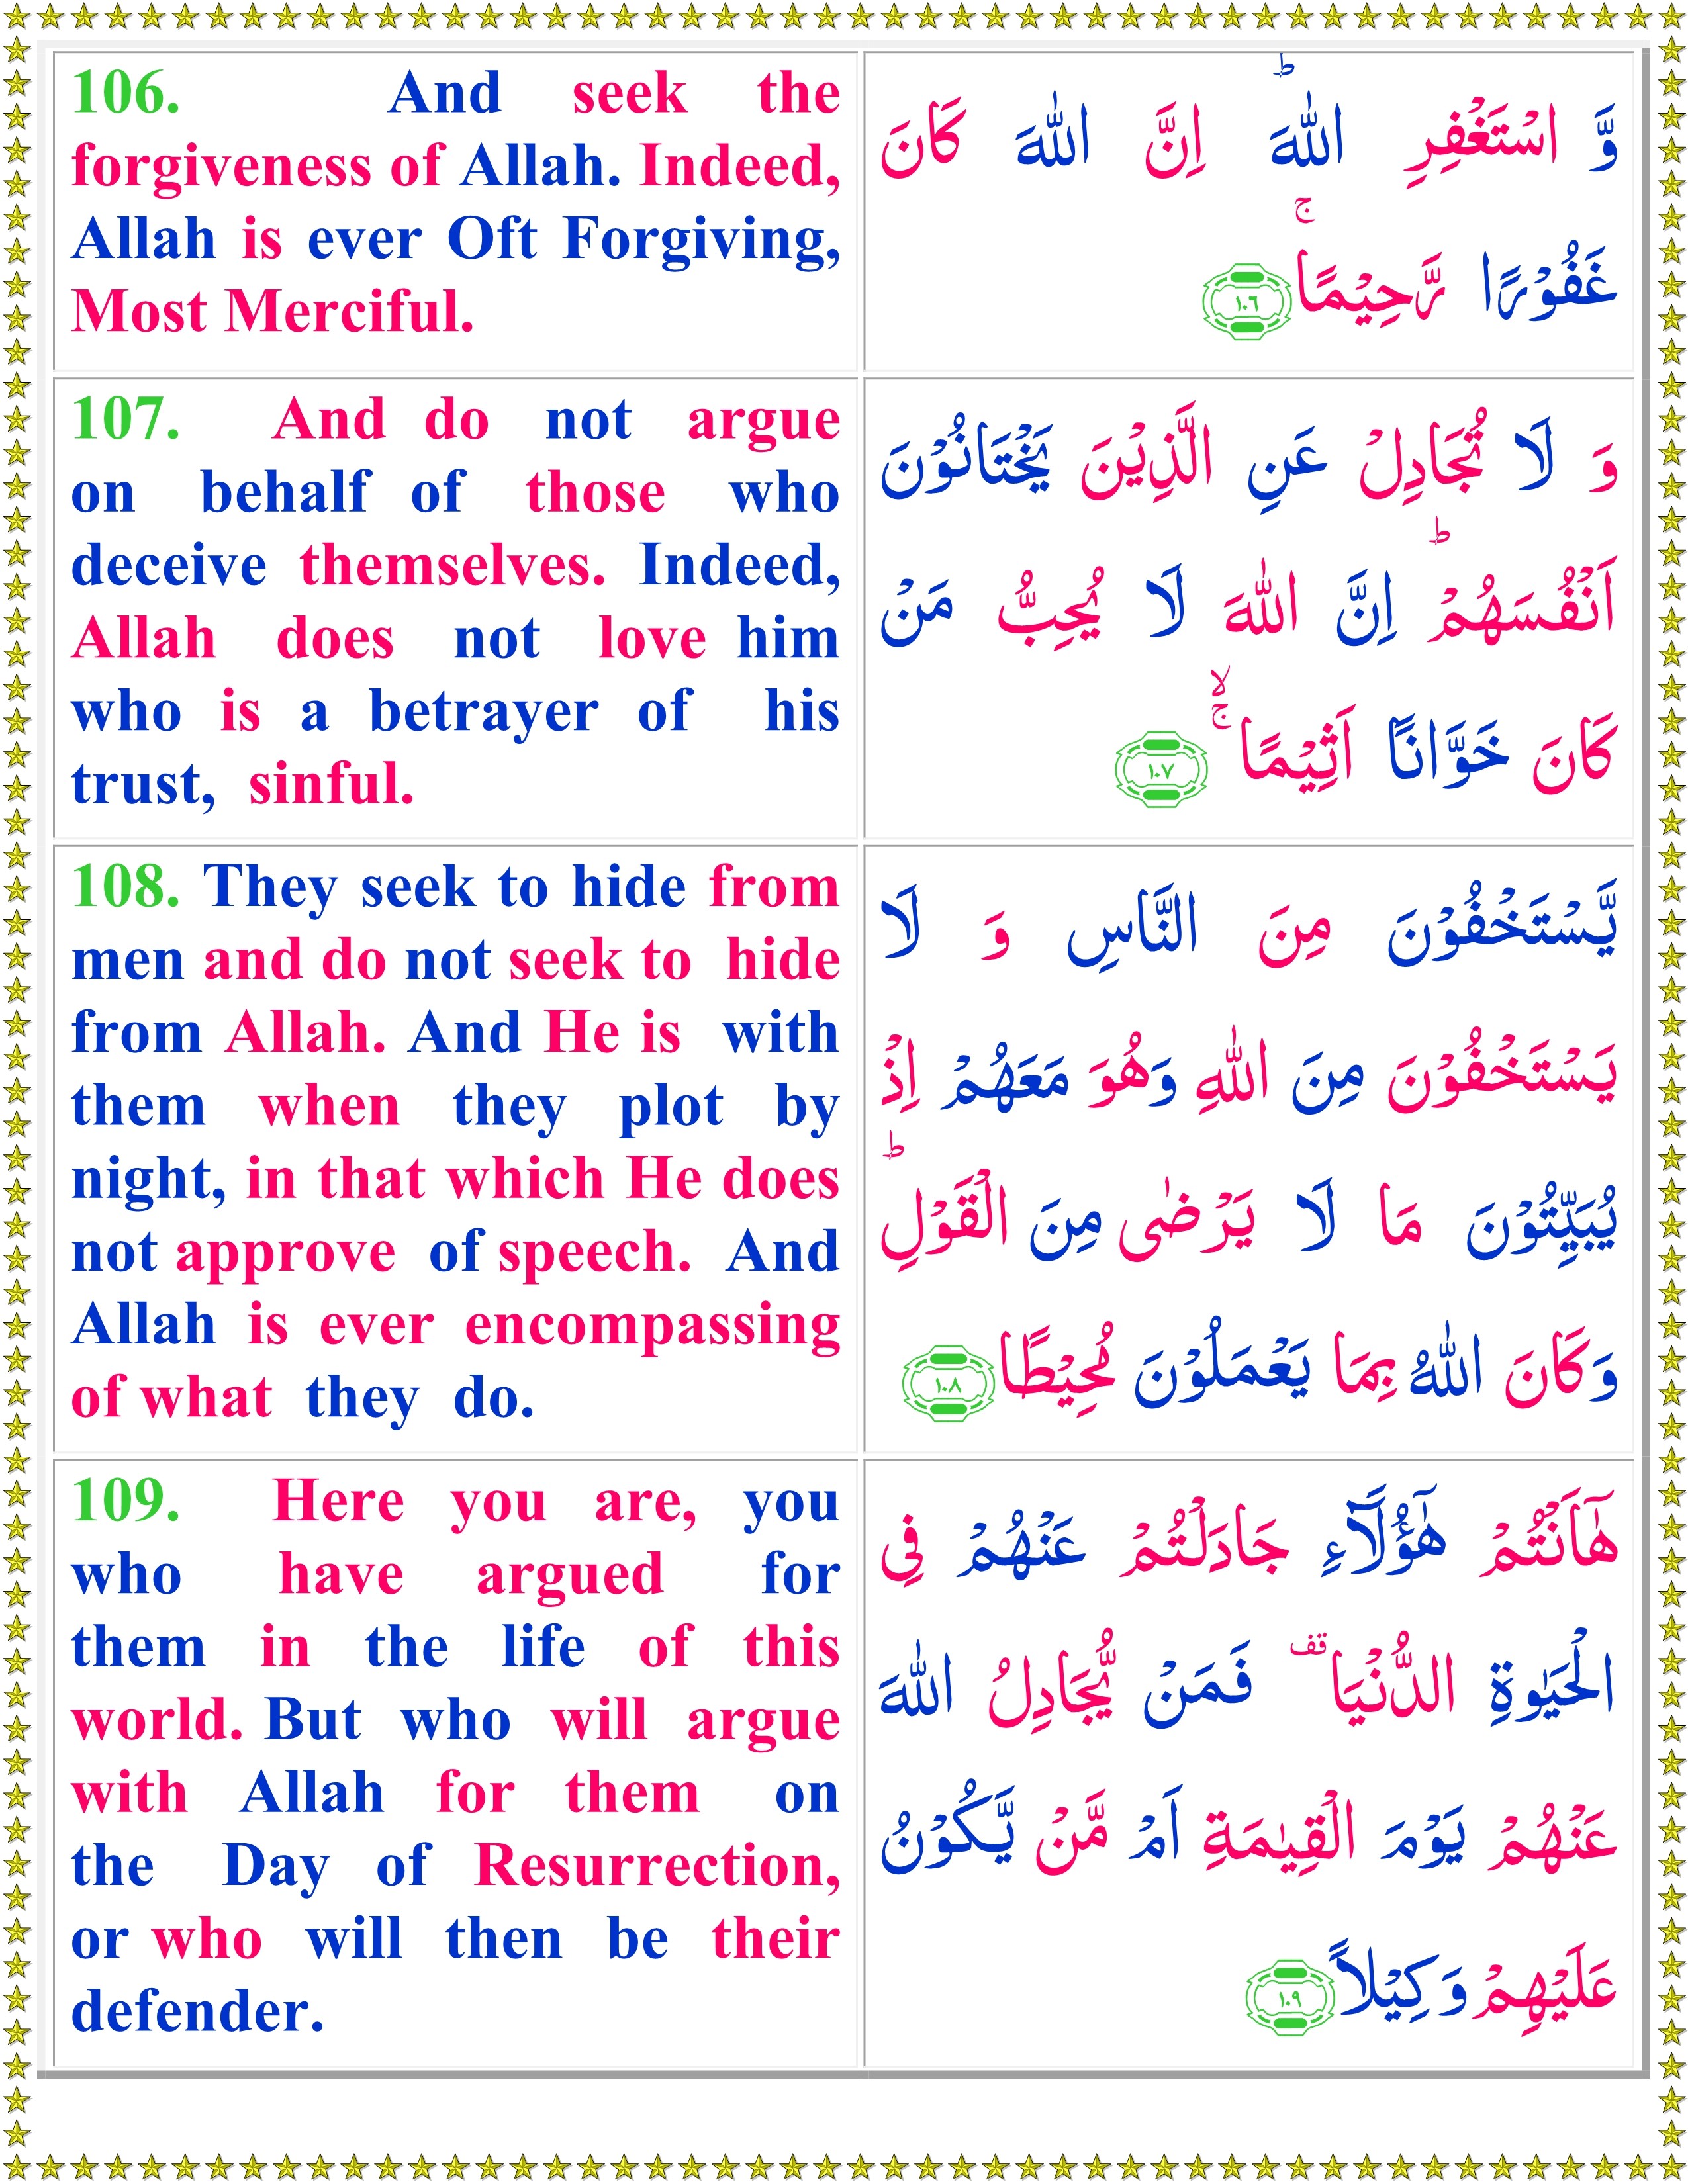 106. And seek the
forgiveness of Allah. Indeed,
Allah is ever Oft Forgiving,
Most Merciful.
وَّ اسْتَغْفِرِ اللّٰهَ ؕ اِنَّ اللّٰهَ كَانَ
غَفُوْرًا رَّحِيْمًا ۚ ١٠٦
107. And do not argue
on behalf of those who
deceive themselves. Indeed,
Allah does not love him
who is a betrayer of his
trust, sinful.
وَ لَا تُجَادِلْ عَنِ الَّذِيْنَ يَخْتَانُوْنَ
اَنْفُسَهُمْ ؕ اِنَّ اللّٰهَ لَا يُحِبُّ مَنْ
كَانَ خَوَّانًا اَثِيْمًا ۚۙ ١٠٧
108. They seek to hide from
men and do not seek to hide
from Allah. And He is with
them when they plot by
night, in that which He does
not approve of speech. And
Allah is ever encompassing
of what they do.
يَّسْتَخْفُوْنَ مِنَ النَّاسِ وَ لَا
يَسْتَخْفُوْنَ مِنَ اللّٰهِ وَهُوَ مَعَهُمْ اِذْ
يُبَيِّتُوْنَ مَا لَا يَرْضٰى مِنَ الْقَوْلِ ؕ
وَكَانَ اللّٰهُ بِمَا يَعْمَلُوْنَ مُحِيْطًا ١٠٨
109. Here you are, you
who have argued for
them in the life of this
world. But who will argue
with Allah for them on
the Day of Resurrection,
or who will then be their
defender.
هٰۤاَنْتُمْ هٰۤؤُلَۤاءِ جَادَلْتُمْ عَنْهُمْ فِى
الْحَيٰوةِ الدُّنْيَا قف فَمَنْ يُّجَادِلُ اللّٰهَ
عَنْهُمْ يَوْمَ الْقِيٰمَةِ اَمْ مَّنْ يَّكُوْنُ
عَلَيْهِمْ وَكِيْلًا ١٠٩